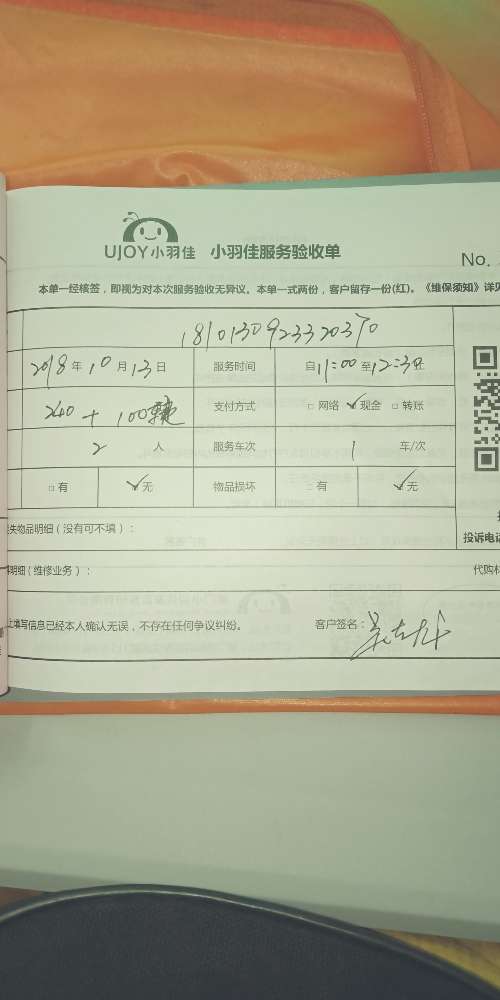 UJOY小羽佳 小羽佳服务验收单
No.
本单一经核签，即视为对本次服务验收无异议。本单一式两份，客户留存一份(红)。《维保须知》详见
1810130923320370
2018年10月13日 服务时间 自11:00至12:30止
240+100 支付方式 □网络 ✓现金 □转账
2人 服务车次 1车/次
□有 ✓无 物品损坏 □有 ✓无
失物品明细（没有可不填）：
投诉电话
明细（维修业务）：
代购材
上填写信息已经本人确认无误，不存在任何争议纠纷。 客户签名：